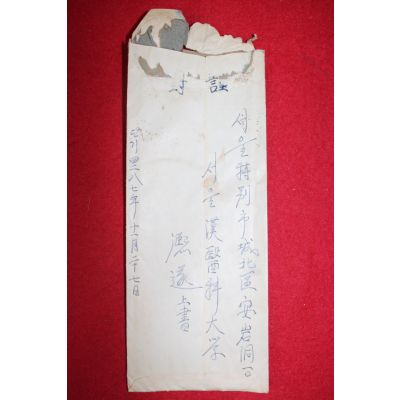 서울特別市城北區安岩洞
서울漢醫科大学
熈遂上書
단기四二八七年十一月二十七日